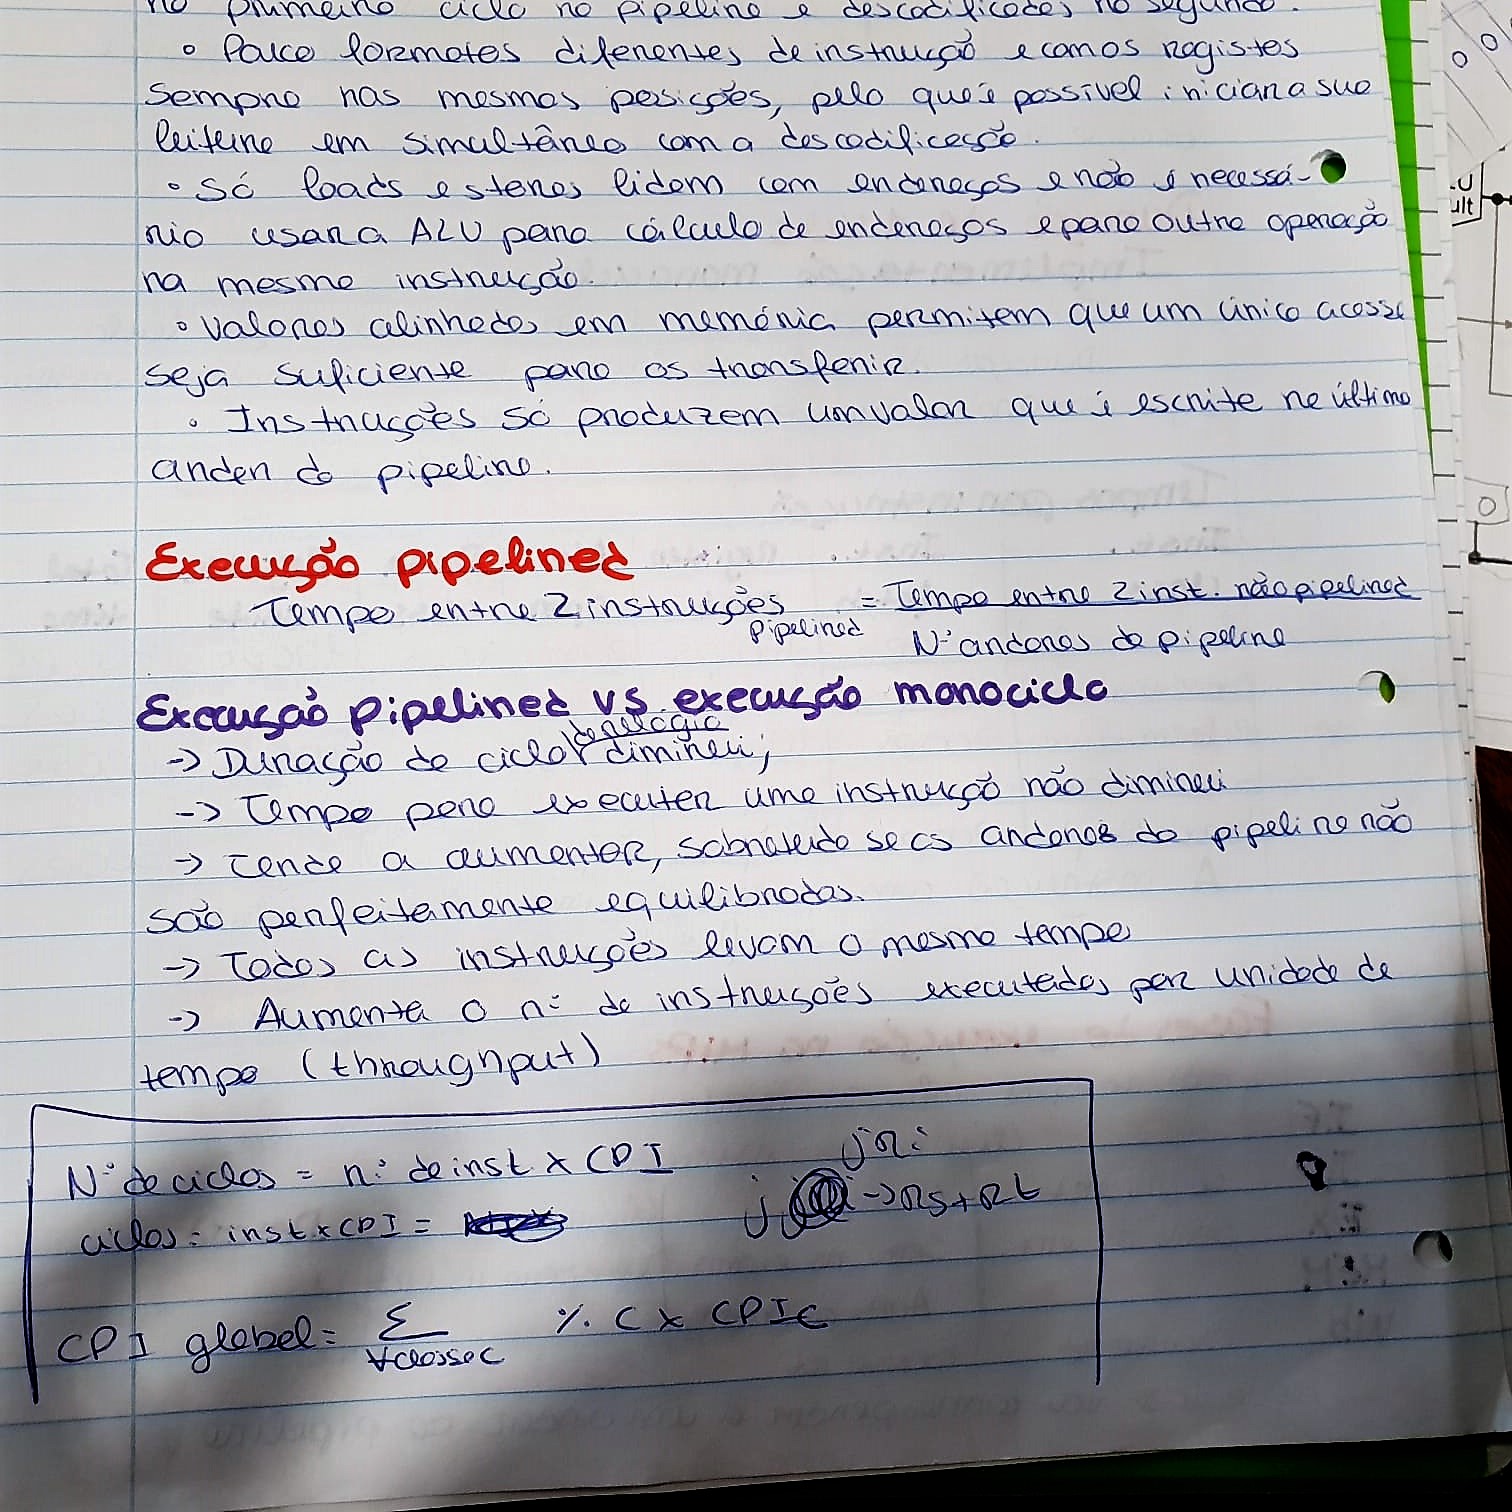 no primeiro ciclo no pipeline e descodificades no segundo.
• Pouco formatos diferentes de instrução e com os registes
sempre nas mesmas posições, pelo que é possível iniciar a sua
leitura em simultâneo com a descodificação.
• Só loads e stores lidam com endereços e não é necessá-
rio usar a ALU para cálculo de endereços e para outra operação
na mesma instrução.
• Valores alinhados em memória permitem que um único acesso
seja suficiente para os transferir.
• Instruções só produzem um valor que é escrito no último
andar do pipeline.
Execução pipelined
Tempo entre 2 instruções pipelined = Tempo entre 2 inst. não pipelined
Nº andares do pipeline
Execução pipelined vs execução monociclo
-> Duração de ciclo de relógio diminui;
-> Tempo para executar uma instrução não diminui
-> Tende a aumentar, sobretudo se os andares do pipeline não
são perfeitamente equilibrados.
-> Todas as instruções levam o mesmo tempo
-> Aumenta o nº de instruções executadas por unidade de
tempo (throughput)
Nº de ciclos = nº de inst x CPI
jr:
ciclos = inst x CPI =
j -> Rs + Rt
CPI global = Σ % C x CPIc
∀ classe C
LU
ult